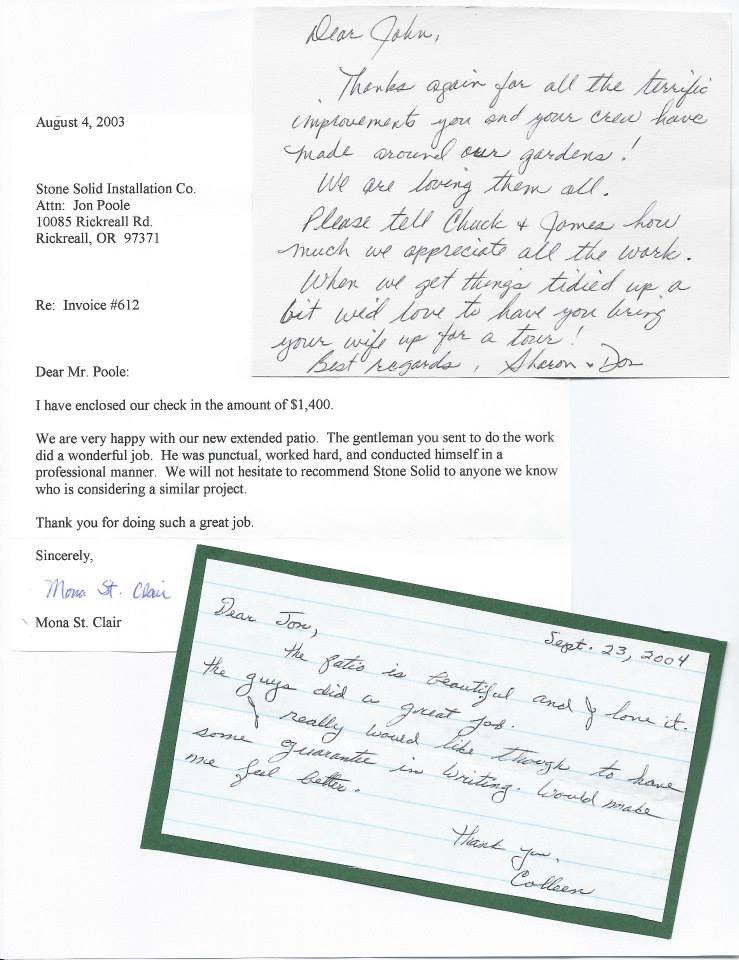 Dear John,
Thanks again for all the terrific
improvements you and your crew have
made around our gardens!
We are loving them all.
Please tell Chuck + James how
much we appreciate all the work.
When we get things tidied up a
bit we'd love to have you bring
your wife up for a tour!
Best regards, Sharon + Don
August 4, 2003
Stone Solid Installation Co.
Attn: Jon Poole
10085 Rickreall Rd.
Rickreall, OR 97371
Re: Invoice #612
Dear Mr. Poole:
I have enclosed our check in the amount of $1,400.
We are very happy with our new extended patio. The gentleman you sent to do the work
did a wonderful job. He was punctual, worked hard, and conducted himself in a
professional manner. We will not hesitate to recommend Stone Solid to anyone we know
who is considering a similar project.
Thank you for doing such a great job.
Sincerely,
Mona St. Clair
Mona St. Clair
Sept. 23, 2004
Dear Jon,
the patio is beautiful and I love it.
the guys did a great job.
I really would like though to have
some guarantee in writing. Would make
me feel better.
Thank you,
Colleen